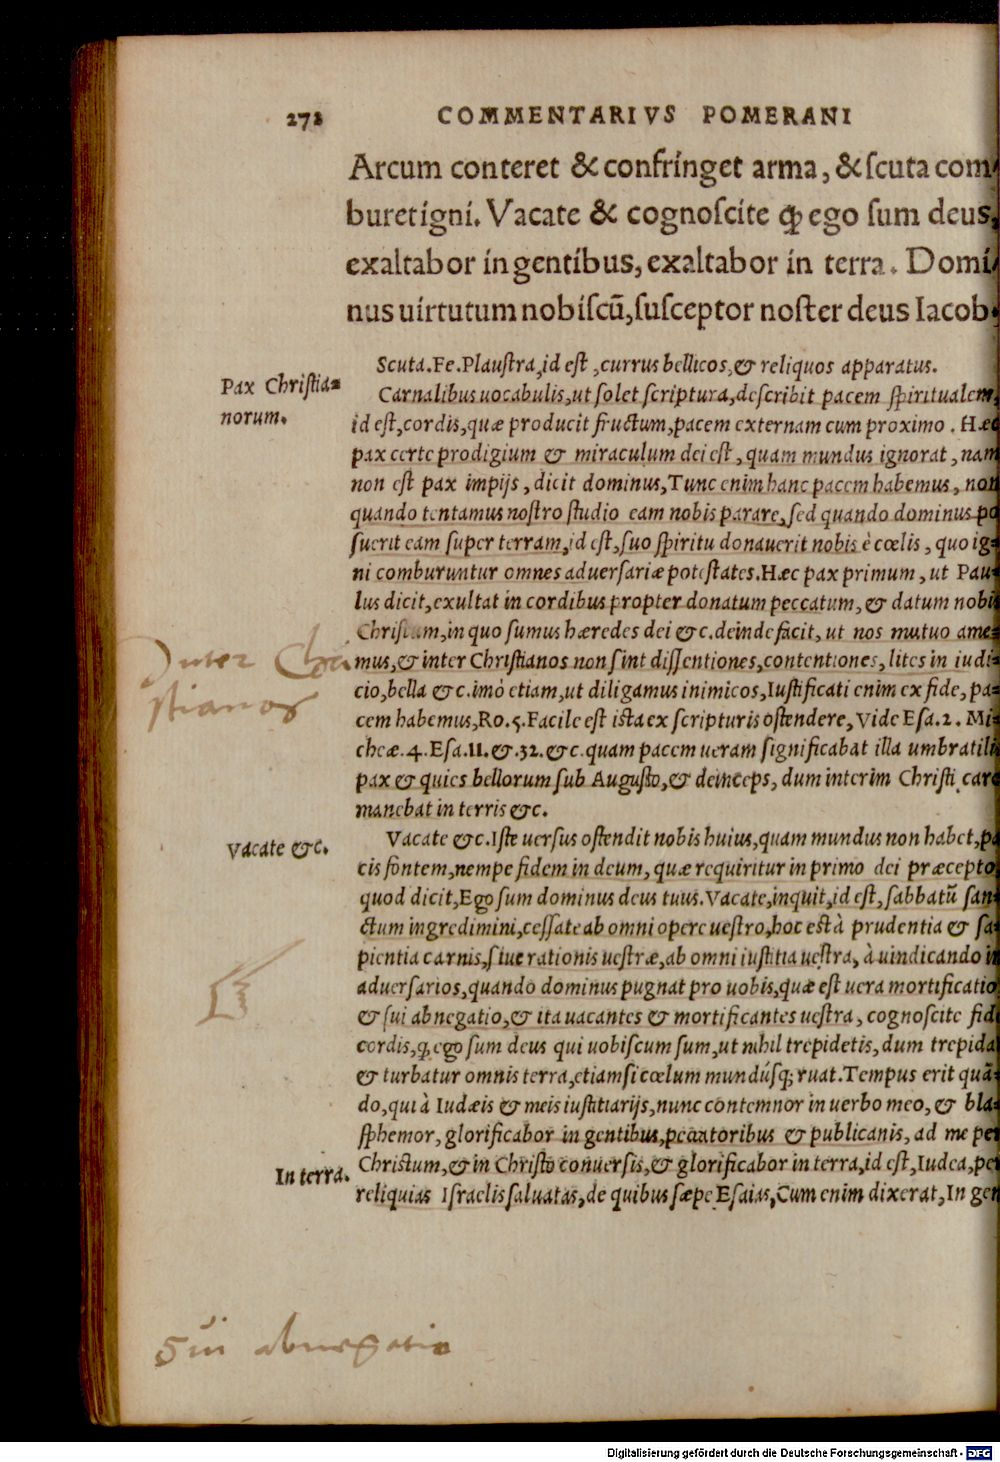 272 COMMENTARIVS POMERANI
Arcum conteret & confringet arma, & ſcuta com-
buret igni. Vacate & cognoſcite ꝙ ego ſum deus,
exaltabor in gentibus, exaltabor in terra. Domi-
nus uirtutum nobiſcū, ſuſceptor noſter deus Iacob.
Scuta. Fe. Plauſtra, id eſt, currus bellicos, & reliquos apparatus.
Pax Chriſtia=
norum.
Carnalibus uocabulis, ut ſolet ſcriptura, deſcribit pacem ſpiritualem,
id eſt, cordis, quæ producit fructum, pacem externam cum proximo. Hæc
pax certe prodigium & miraculum dei eſt, quam mundus ignorat, nam
non eſt pax impijs, dicit dominus, Tunc enim hanc pacem habemus, non
quando tentamus noſtro ſtudio eam nobis parare, ſed quando dominus po
ſuerit eam ſuper terram, id eſt, ſuo ſpiritu donauerit nobis è cœlis, quo ig=
ni comburuntur omnes aduerſariæ poteſtates. Hæc pax primum, ut Pau=
lus dicit, exultat in cordibus propter donatum peccatum, & datum nobis
Chriſtum, in quo ſumus hæredes dei &c. deinde facit, ut nos mutuo ame=
mus, & inter Chriſtianos non ſint diſſentiones, contentiones, lites in iudi=
cio, bella &c. imò etiam, ut diligamus inimicos, Iuſtificati enim ex fide, pa=
cem habemus, Ro. 5. Facile eſt iſta ex ſcripturis oſtendere, Vide Eſa. 2. Mi=
cheæ. 4. Eſa. 11. &. 32. &c. quam pacem ueram ſignificabat illa umbratilis
pax & quies bellorum ſub Auguſto, & deinceps, dum interim Chriſti caro
manebat in terris &c.
Inter Chri
stianos
Vacate &c.
Vacate &c. Iſte uerſus oſtendit nobis huius, quam mundus non habet, pa
cis fontem, nempe fidem in deum, quæ requiritur in primo dei præcepto,
quod dicit, Ego ſum dominus deus tuus. Vacate, inquit, id eſt, ſabbatū ſan=
ctum ingredimini, ceſſate ab omni opere ueſtro, hoc eſt à prudentia & ſa=
pientia carnis, ſiue rationis ueſtræ, ab omni iuſtitia ueſtra, à uindicando in
aduerſarios, quando dominus pugnat pro uobis, quæ eſt uera mortificatio
& ſui abnegatio, & ita uacantes & mortificantes ueſtra, cognoſcite fide
cordis, ꝙ ego ſum deus qui uobiſcum ſum, ut nihil trepidetis, dum trepidat
& turbatur omnis terra, etiamſi cœlum mundúſq; ruat. Tempus erit quā=
do, qui à Iudæis & meis iuſtitiarijs, nunc contemnor in uerbo meo, & bla=
ſphemor, glorificabor in gentibus, peccatoribus & publicanis, ad me per
Chriſtum, & in Chriſto conuerſis, & glorificabor in terra, id eſt, Iudea, per
reliquias Iſraelis ſaluatas, de quibus ſæpe Eſaias, Cum enim dixerat, In gen
In terra.
Sui abnegatio
Digitalisierung gefördert durch die Deutsche Forschungsgemeinschaft - DFG